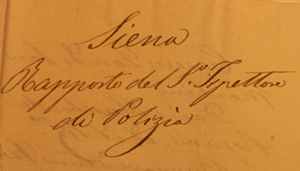 Siena
Rapporto del S.r Ispettore
di Polizia